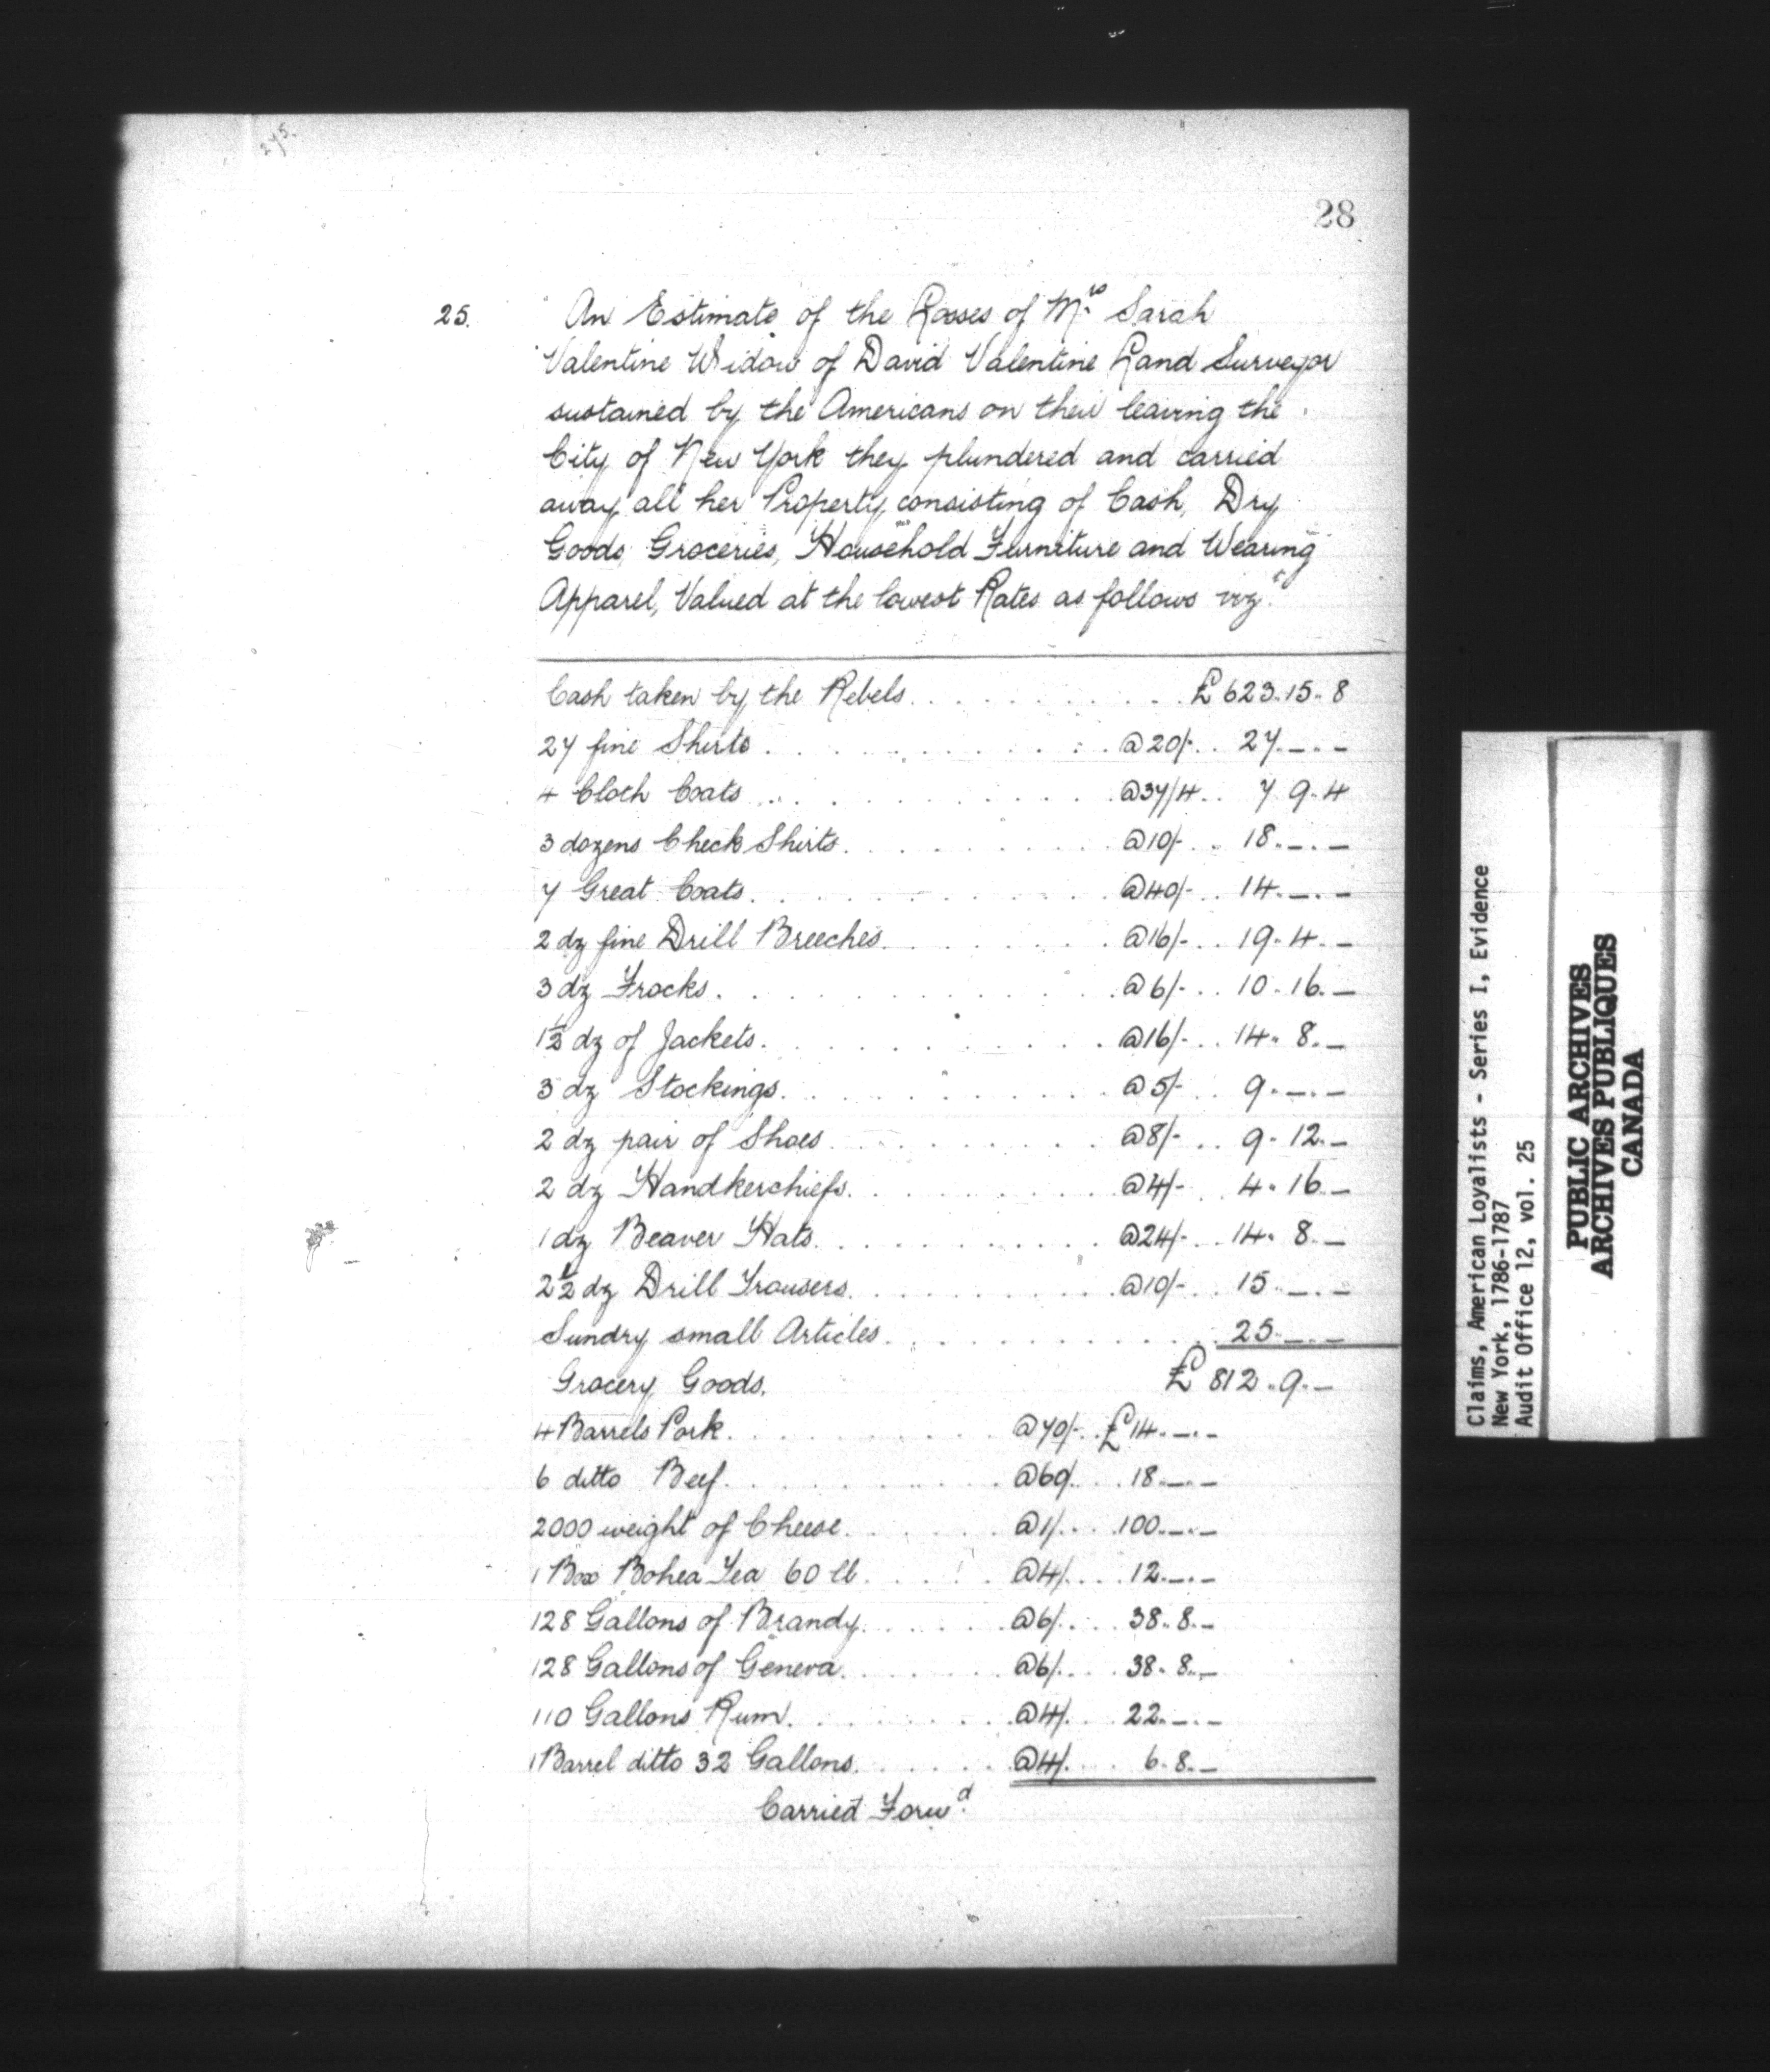 275.
28
25. An Estimate of the Losses of Mrs Sarah
Valentine Widow of David Valentine Land Surveyor
sustained by the Americans on their leaving the
City of New York they plundered and carried
away all her Property consisting of Cash, Dry
Goods, Groceries, Household Furniture and Wearing
Apparel, Valued at the lowest Rates as follows vizt.
Cash taken by the Rebels. . . . . . . . . . . . £ 623.. 15.. 8
27 fine Shirts . . . . . . . . . . . @ 20/-. . 27. — . —
4 Cloth Coats . . . . . . . . . . . @ 37/4. . 7. 9. 4
3 dozens Check Shirts. . . . . . . . . . @ 10/- . . 18. — . —
7 Great Coats. . . . . . . . . . . @ 40/- . . 14. — . —
2 dz fine Drill Breeches. . . . . . . . @ 16/- . . 19. 4. —
3 dz Frocks. . . . . . . . . . . @ 6/- . . 10. 16. —
1½ dz of Jackets. . . . . . . . . . @ 16/- . . 14. 8. —
3 dz Stockings. . . . . . . . . . @ 5/- . . 9. — . —
2 dz pair of Shoes . . . . . . . . . @ 8/- . . 9. 12. —
2 dz Handkerchiefs. . . . . . . . . @ 4/- . . 4. 16. —
1 dz Beaver Hats. . . . . . . . . . @ 24/- . . 14. 8. —
2½ dz Drill Trousers. . . . . . . . . @ 10/- . . 15. — . —
Sundry small Articles. . . . . . . . . . . . 25. — . —
Grocery Goods. £ 812.. 9. —
4 Barrels Pork. . . . . . . . . @ 70/-. . £ 14. — . —
6 ditto Beef. . . . . . . . . @ 60/. . . 18. — . —
2000 weight of Cheese. . . . . . @ 1/. . . 100. — . —
1 Box Bohea Tea 60 lb. . . . . . @ 4/. . . 12. — . —
128 Gallons of Brandy. . . . . . @ 6/. . . 38. 8. —
128 Gallons of Geneva. . . . . . @ 6/. . . 38. 8. —
110 Gallons Rum. . . . . . . . @ 4/. . . 22. — . —
1 Barrel ditto 32 Gallons. . . . . . @ 4/. . . 6. 8. —
Carried Forwd.
Claims, American Loyalists - Series I, Evidence
New York, 1786-1787
Audit Office 12, vol. 25
PUBLIC ARCHIVES
ARCHIVES PUBLIQUES
CANADA